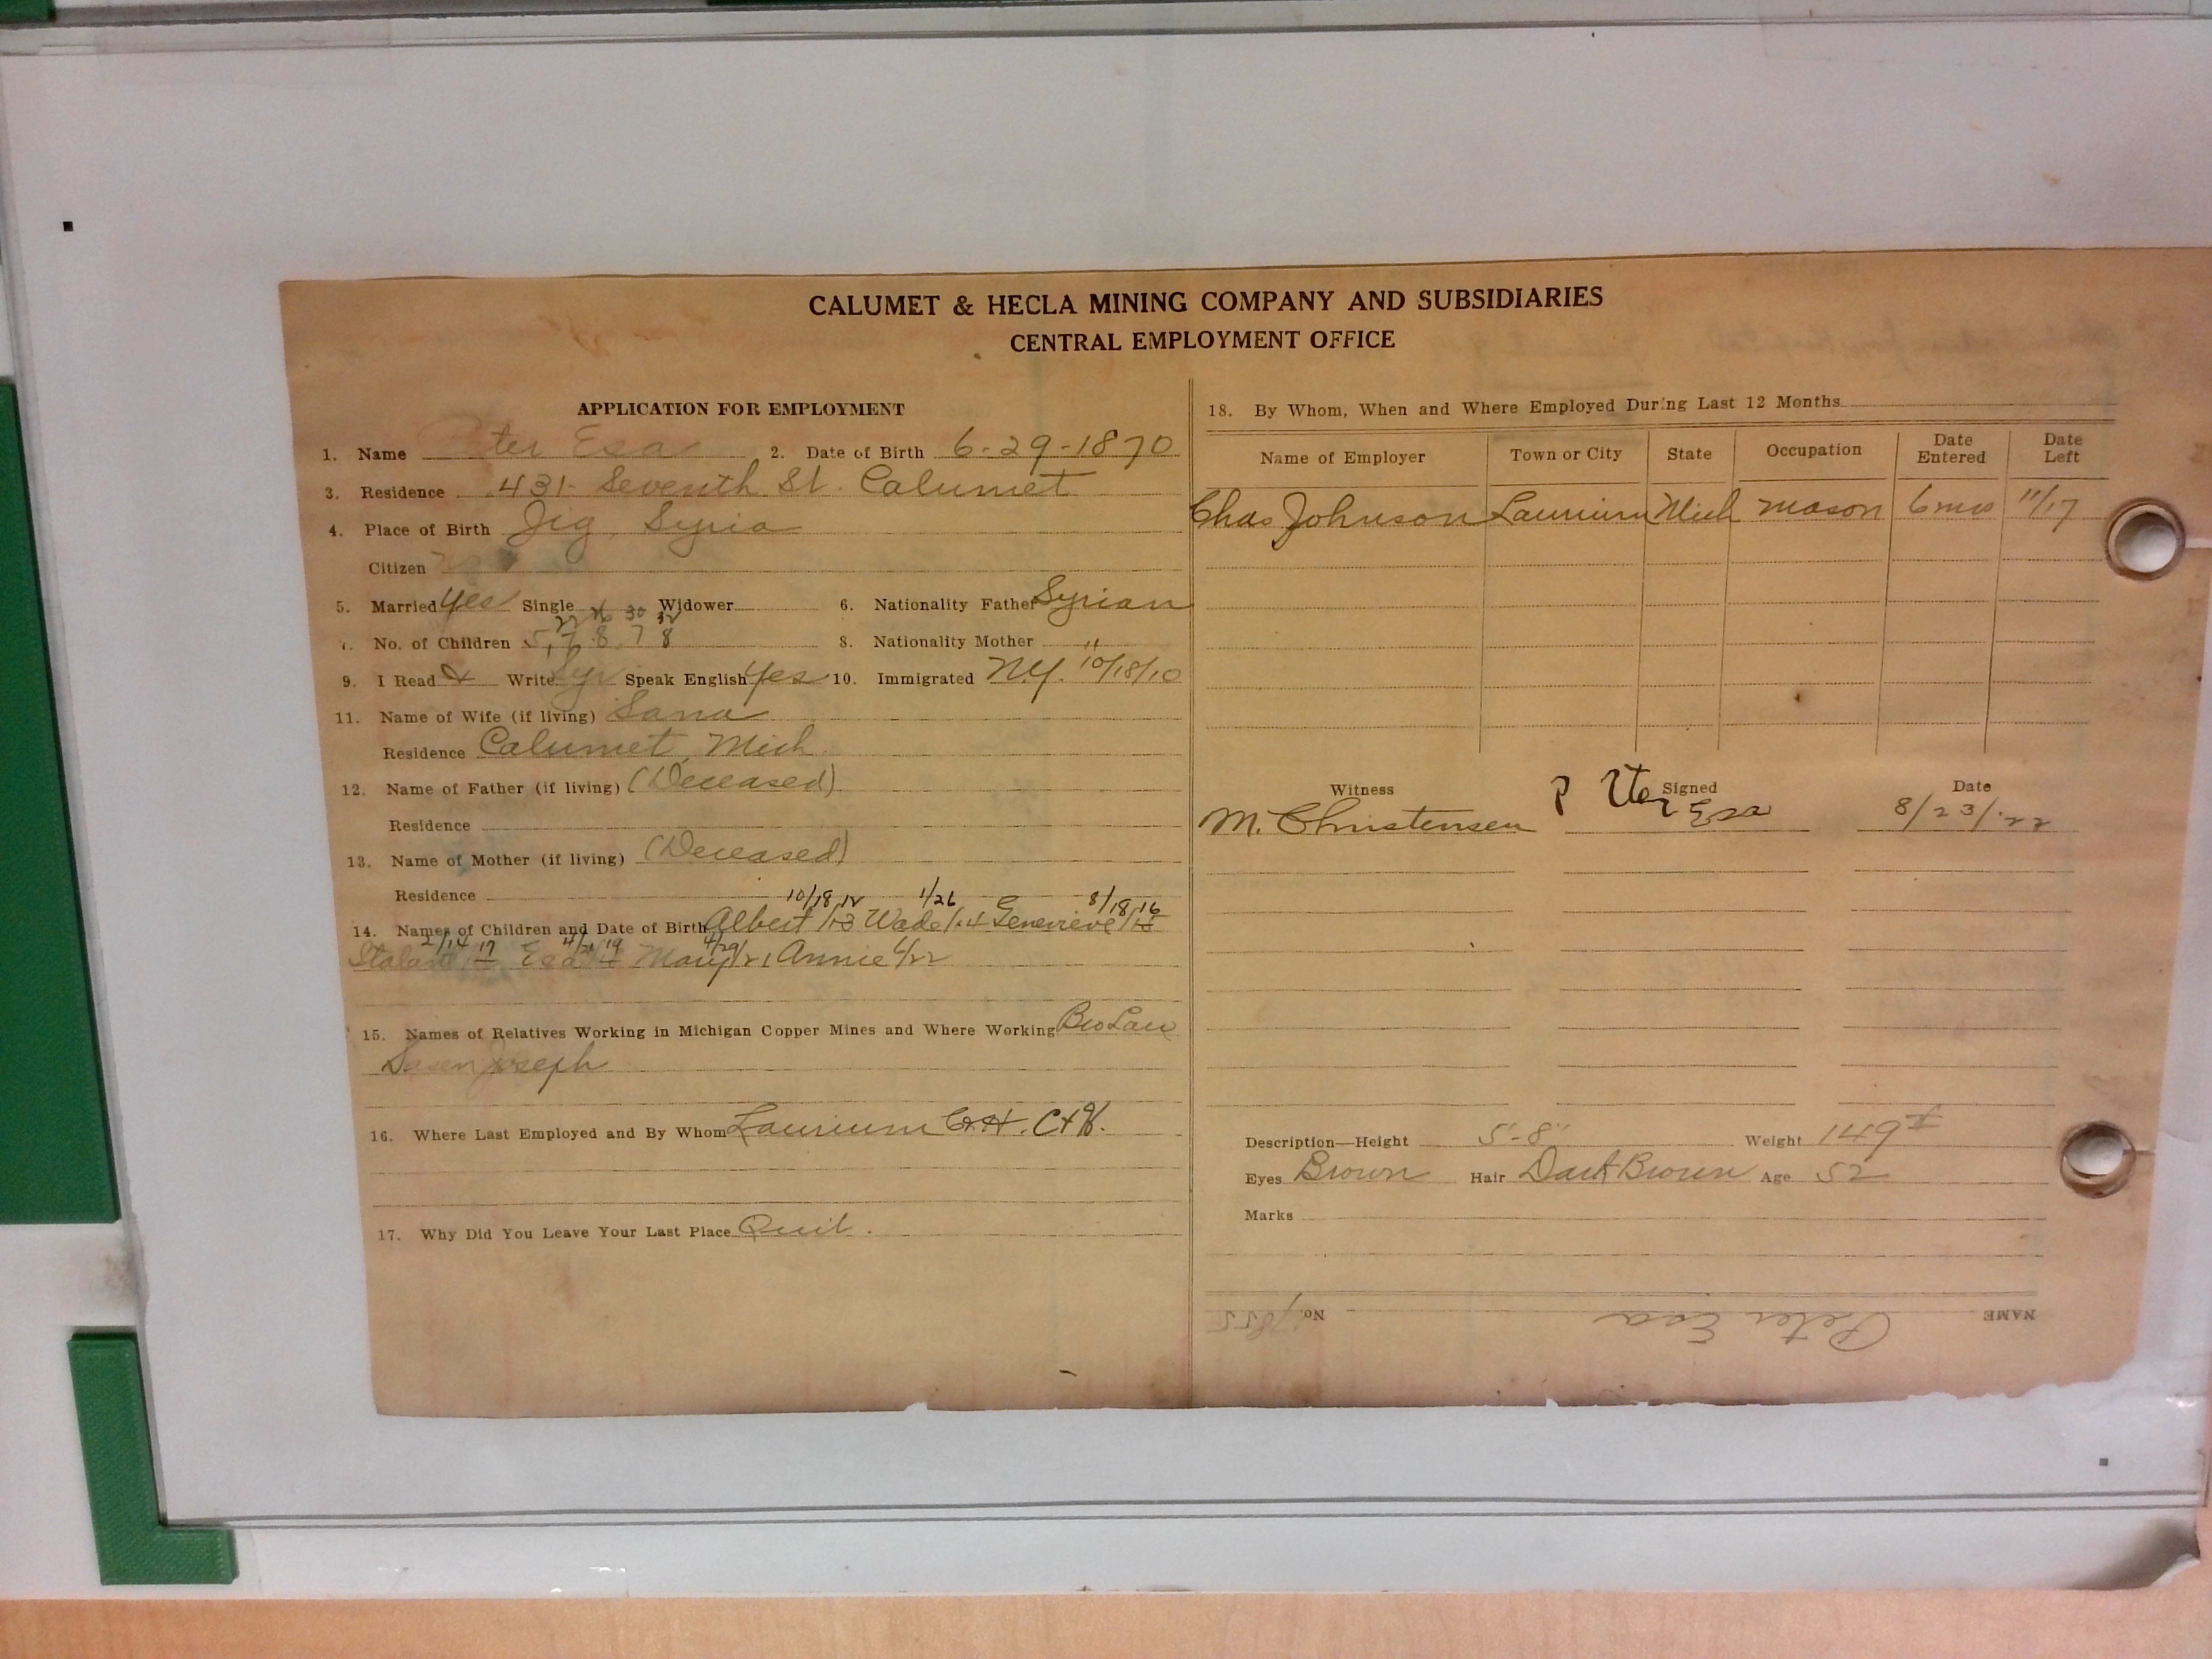 CALUMET & HECLA MINING COMPANY AND SUBSIDIARIES
CENTRAL EMPLOYMENT OFFICE
APPLICATION FOR EMPLOYMENT
1. Name Peter Esa 2. Date of Birth 6-29-1870
3. Residence 431 Seventh St. Calumet
4. Place of Birth Jig, Syria
Citizen
5. Married Yes Single Widower 6. Nationality Father Syrian
22 26 30 32
7. No. of Children 5, 7 8 7 8 8. Nationality Mother "
9. I Read & Write Syr Speak English Yes 10. Immigrated N.Y. 10/18/10
11. Name of Wife (if living) Sana
Residence Calumet, Mich
12. Name of Father (if living) (Deceased)
Residence
13. Name of Mother (if living) (Deceased)
Residence
10/18 12 1/26 8/18 16
14. Names of Children and Date of Birth Albert /13 Wade /14 Genevieve /15
2/14 17 4/21 19 4/29
Esa Mary /21, Annie 6/22
15. Names of Relatives Working in Michigan Copper Mines and Where Working Bro Law
Joseph
16. Where Last Employed and By Whom Laurium C&H. C&H.
17. Why Did You Leave Your Last Place Quit.
18. By Whom, When and Where Employed During Last 12 Months
Name of Employer Town or City State Occupation Date Entered Date Left
Chas Johnson Laurium Mich Mason 6 mos 11/17
Witness Signed Date
M. Christensen P eter Esa 8/23/'22
Description—Height 5'-8" Weight 149#
Eyes Brown Hair Dark Brown Age 52
Marks
NAME Peter Esa No. 17855